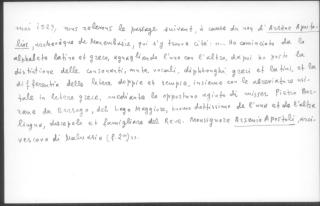 mai 1529, nous relevons le passage suivant, à cause du nom d'Arsène Aposto-
lios, archevêque de Monembasie, qui s'y trouve cité: «... Ho cominciato da lo
alphabeto latino et greco, aguagliando l'uno con l'altro, da poi ho posto la
distintione delle consonanti, mute, vocali, diphthonghi greci et latini, et la
differentia delle letere doppie et scempie, insieme con le abreviature usi-
tate in letere grece, mediante lo opportuno agiuto di misser Pietro
da Brisago, del Lago Maggiore, homo dottissimo de l'una et de l'altra
lingua, descepolo et famigliare del Re.o Monsignore Arsenio Apostoli, arci-
vescovo di Malvasia (f. 2v)».